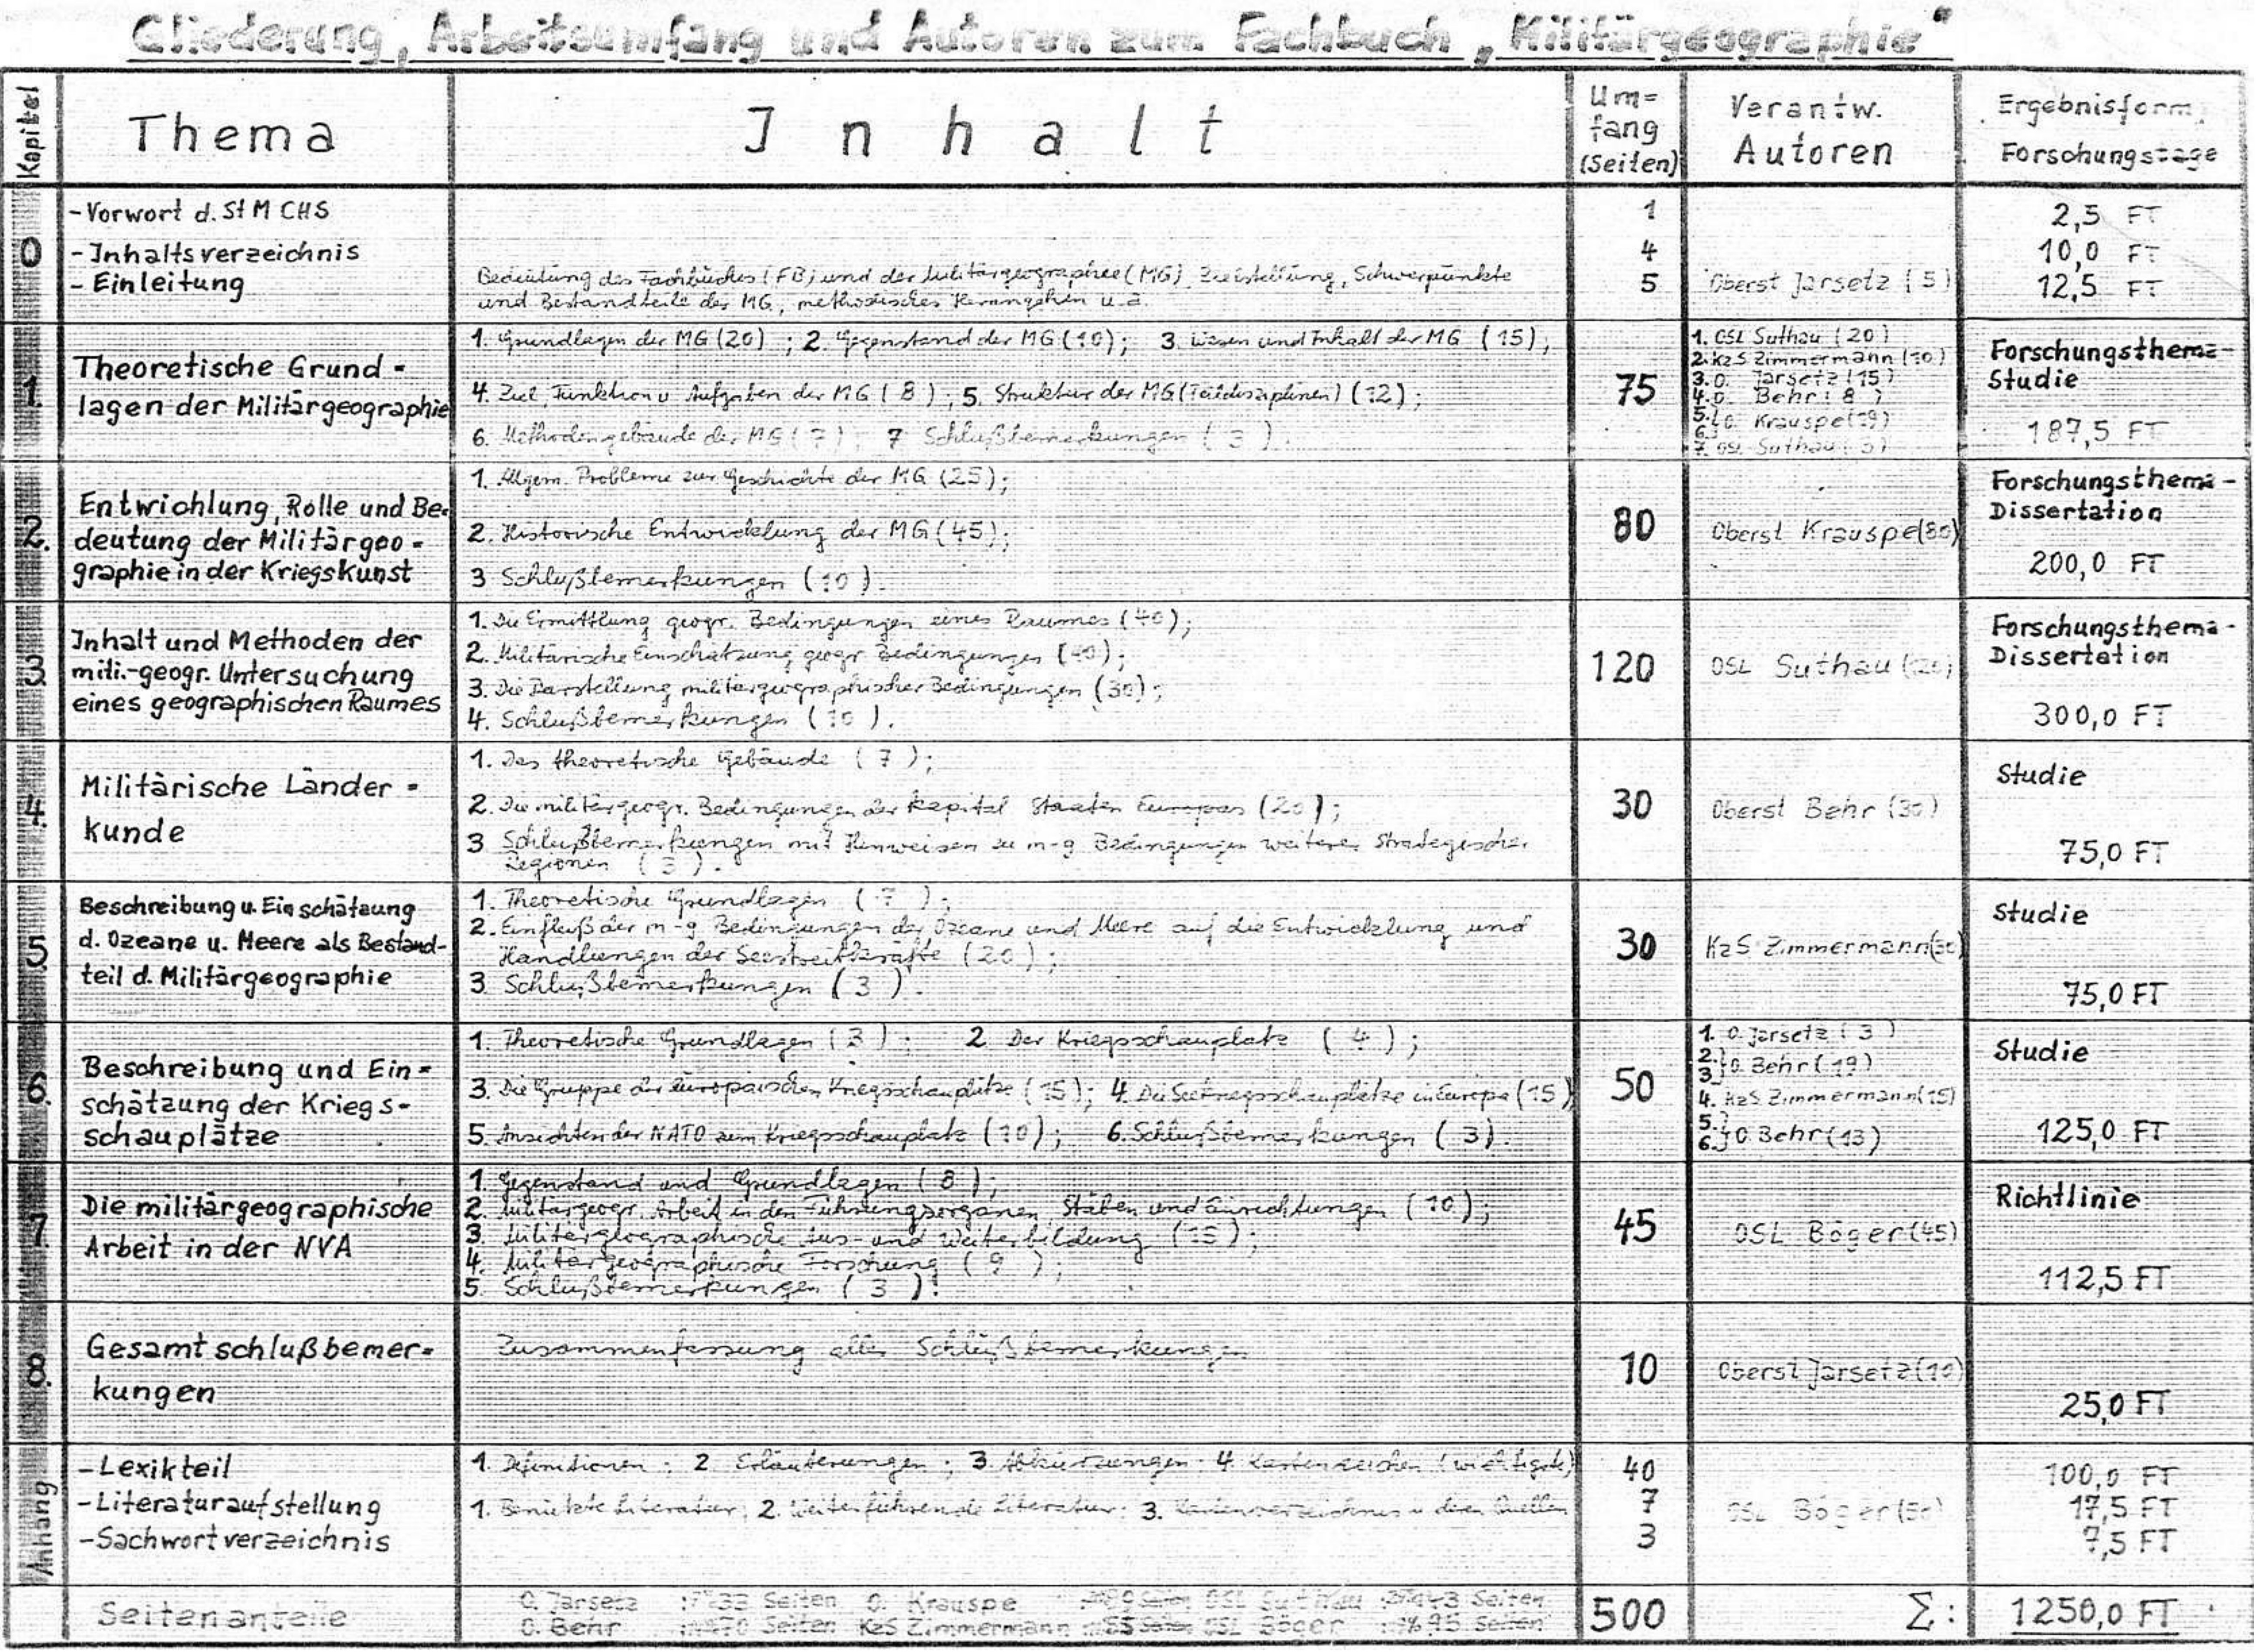 Gliederung, Arbeitsumfang und Autoren zum Fachbuch „Militärgeographie"
Kapitel
Thema
Inhalt
Um=
fang
(Seiten)
Verantw.
Autoren
Ergebnisform,
Forschungstage
0
-Vorwort d. St M CHS
1
2,5 FT
-Inhaltsverzeichnis
4
10,0 FT
- Einleitung
Bedeutung des Fachbuches (FB) und der Militärgeographie (MG), Zielstellung, Schwerpunkte
und Bestandteile der MG, methodisches Herangehen u.a.
5
Oberst Jarsetz (5)
12,5 FT
1.
Theoretische Grund=
lagen der Militärgeographie
1. Grundlagen der MG (20) ; 2. Gegenstand der MG (10); 3. Wesen und Inhalt der MG (15);
4. Ziel, Funktion u Aufgaben der MG (8); 5. Struktur der MG (Teildisziplinen) (12);
6. Methodengebäude der MG (7); 7 Schlußbemerkungen (3).
75
1. OSL Suthau (20)
2. KzS Zimmermann (10)
3. O. Jarsetz (15)
4. O. Behr (8)
5.
6. O. Krauspe (19)
7. OSL Suthau (3)
Forschungsthema-
Studie
187,5 FT
2.
Entwichlung, Rolle und Be=
deutung der Militärgeo=
graphie in der Kriegskunst
1. Allgem. Probleme zur Geschichte der MG (25);
2. Historische Entwicklung der MG (45);
3 Schlußbemerkungen (10).
80
Oberst Krauspe (80)
Forschungsthema-
Dissertation
200,0 FT
3
Inhalt und Methoden der
mili.-geogr. Untersuchung
eines geographischen Raumes
1. Die Ermittlung geogr. Bedingungen eines Raumes (40);
2. Militärische Einschätzung geogr. Bedingungen (40);
3. Die Darstellung militärgeographischer Bedingungen (30);
4. Schlußbemerkungen (10).
120
OSL Suthau (120)
Forschungsthema-
Dissertation
300,0 FT
4.
Militärische Länder=
kunde
1. Das theoretische Gebäude (7);
2. Die militärgeogr. Bedingungen der kapital. Staaten Europas (20);
3 Schlußbemerkungen mit Hinweisen zu m-g Bedingungen weiterer strategischer
Regionen (3).
30
Oberst Behr (30)
Studie
75,0 FT
5
Beschreibung u. Einschätzung
d. Ozeane u. Meere als Bestand-
teil d. Militärgeographie
1. Theoretische Grundlagen (7);
2. Einfluß der m-g Bedingungen der Ozeane und Meere auf die Entwicklung und
Handlungen der Seestreitkräfte (20);
3 Schlußbemerkungen (3).
30
KzS Zimmermann (30)
Studie
75,0 FT
6.
Beschreibung und Ein=
schätzung der Kriegs-
schauplätze
1. Theoretische Grundlagen (3); 2 Der Kriegsschauplatz (4);
3. Die Gruppe der europäischen Kriegsschauplätze (15); 4. Die Seekriegsschauplätze in Europa (15)
5. Ansichten der NATO zum Kriegsschauplatz (10); 6. Schlußbemerkungen (3).
50
1. O. Jarsetz (3)
2.
3. O. Behr (19)
4. KzS. Zimmermann (15)
5.
6. O. Behr (13)
Studie
125,0 FT
7
Die militärgeographische
Arbeit in der NVA
1. Gegenstand und Grundlagen (8);
2. Militärgeogr. Arbeit in den Führungsorganen, Stäben und Einrichtungen (10);
3. Militärgeographische Aus- und Weiterbildung (15);
4. Militärgeographische Forschung (9);
5. Schlußbemerkungen (3).
45
OSL Böger (45)
Richtlinie
112,5 FT
8.
Gesamtschlußbemer=
kungen
Zusammenfassung aller Schlußbemerkungen
10
Oberst Jarsetz (10)
25,0 FT
Anhang
-Lexikteil
1. Definitionen; 2. Erläuterungen; 3. Abkürzungen; 4. Kartenzeichen (wichtigste)
40
100,0 FT
-Literaturaufstellung
1. Benutzte Literatur; 2. Weiterführende Literatur; 3. Kartenverzeichnis u deren Quellen
7
OSL Böger (50)
17,5 FT
-Sachwortverzeichnis
3
7,5 FT
Seitenanteile
O. Jarsetz : 33 Seiten O. Krauspe : Seiten OSL Suthau : 143 Seiten
O. Behr : 70 Seiten KzS Zimmermann : 55 Seiten OSL Böger : 95 Seiten
500
Σ:
1250,0 FT